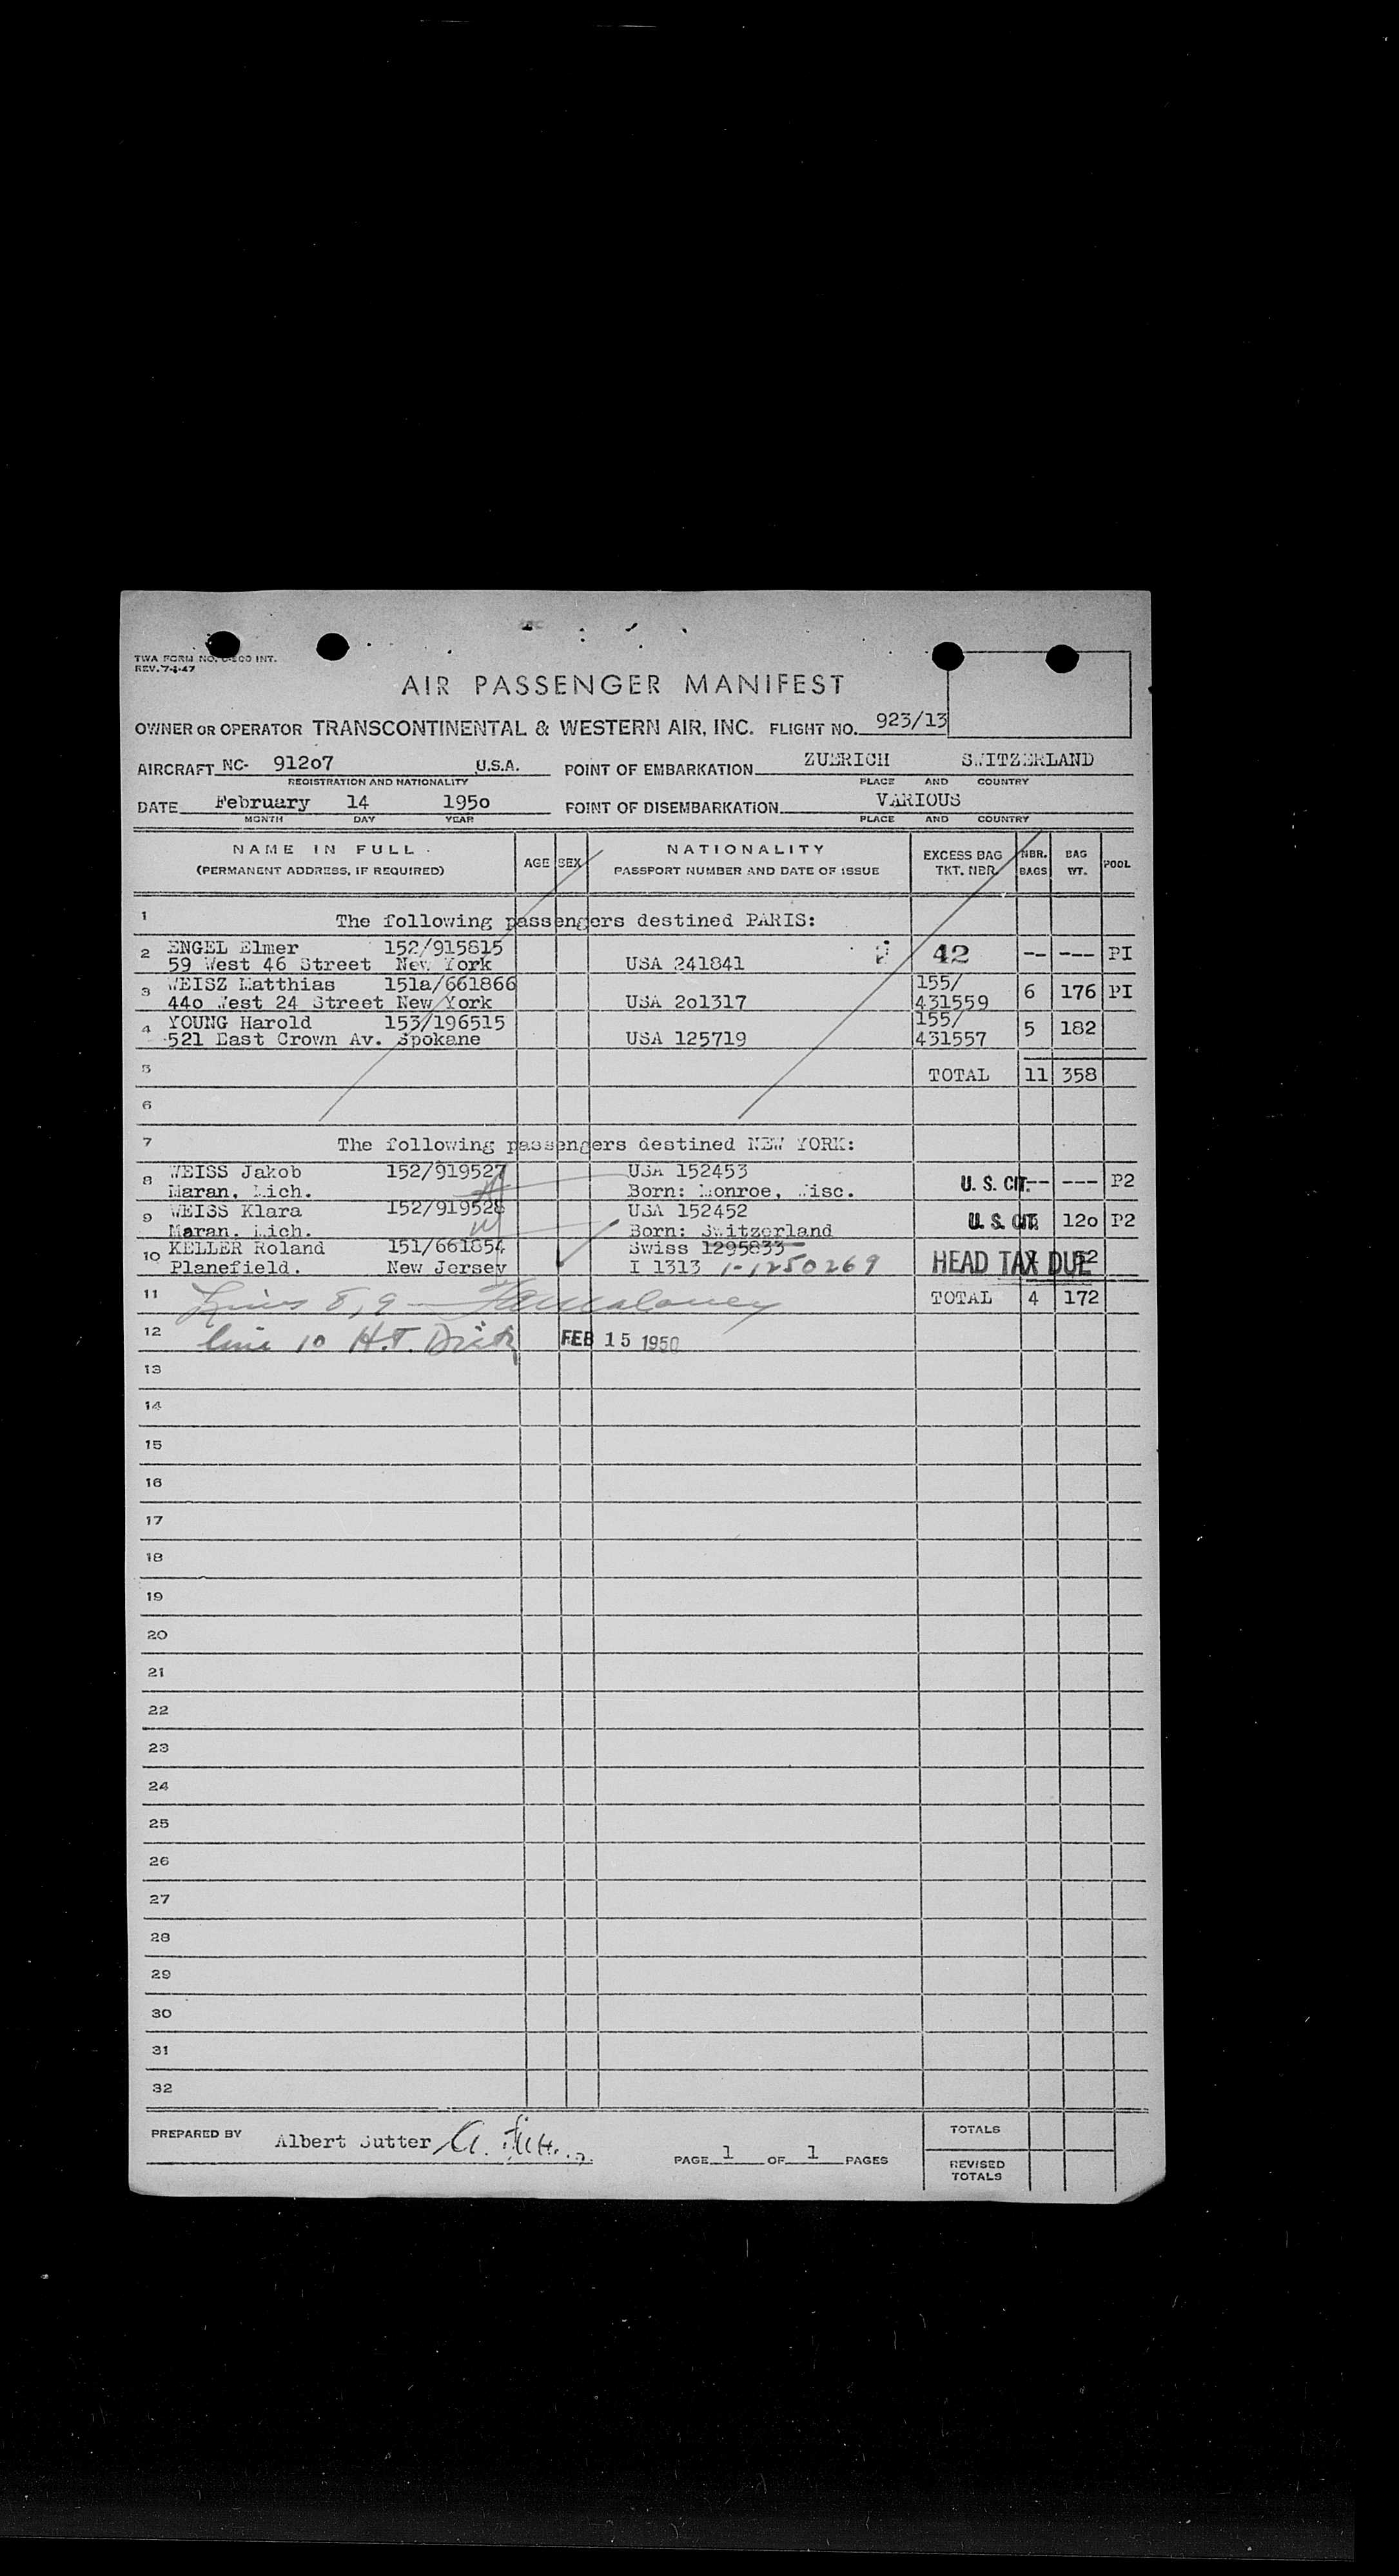 TWA FORM NO. INT.
REV. 7-1-47
AIR PASSENGER MANIFEST
OWNER OR OPERATOR TRANSCONTINENTAL & WESTERN AIR, INC. FLIGHT NO. 923/13
AIRCRAFT NC- 912o7 U.S.A. POINT OF EMBARKATION ZUERICH SWITZERLAND
REGISTRATION AND NATIONALITY PLACE AND COUNTRY
DATE February 14 195o POINT OF DISEMBARKATION VARIOUS
MONTH DAY YEAR PLACE AND COUNTRY
NAME IN FULL AGE SEX NATIONALITY EXCESS BAG NBR. BAG POOL
(PERMANENT ADDRESS, IF REQUIRED) PASSPORT NUMBER AND DATE OF ISSUE TKT. NBR. BAGS WT.
1 The following passengers destined PARIS:
2 ENGEL Elmer 152/915815 42 -- --- PI
59 West 46 Street New York USA 241841
3 WEISZ Matthias 151a/661866 155/ 6 176 PI
44o West 24 Street New York USA 2o1317 431559
4 YOUNG Harold 153/196515 155/ 5 182
521 East Crown Av. Spokane USA 125719 431557
5 TOTAL 11 358
6
7 The following passengers destined NEW YORK:
8 WEISS Jakob 152/919527 USA 152453 U. S. CIT. -- --- P2
Maran, Mich. Born: Monroe, Wisc.
9 WEISS Klara 152/919528 USA 152452 U. S. CIT. 12o P2
Maran, Mich. Born: Switzerland
10 KELLER Roland 151/661854 Swiss 1295833 HEAD TAX DUE
Planefield. New Jersey I 1313 1-1250269
11 Lines 8, 9 — Maloney TOTAL 4 172
12 line 10 H.T. FEB 15 1950
13
14
15
16
17
18
19
20
21
22
23
24
25
26
27
28
29
30
31
32
PREPARED BY Albert Sutter A. Sutter PAGE 1 OF 1 PAGES
TOTALS
REVISED
TOTALS